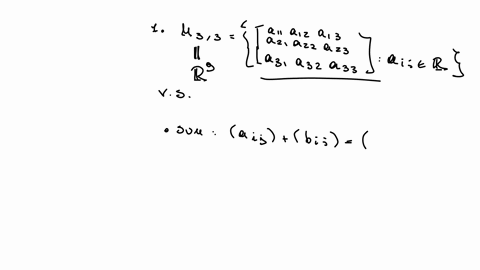 1. M₃,₃ = { [ a₁₁ a₁₂ a₁₃
a₂₁ a₂₂ a₂₃
a₃₁ a₃₂ a₃₃ ] : aᵢⱼ ∈ ℝ }
||
ℝ⁹
v.s.
• sum : (aᵢⱼ) + (bᵢⱼ) = (